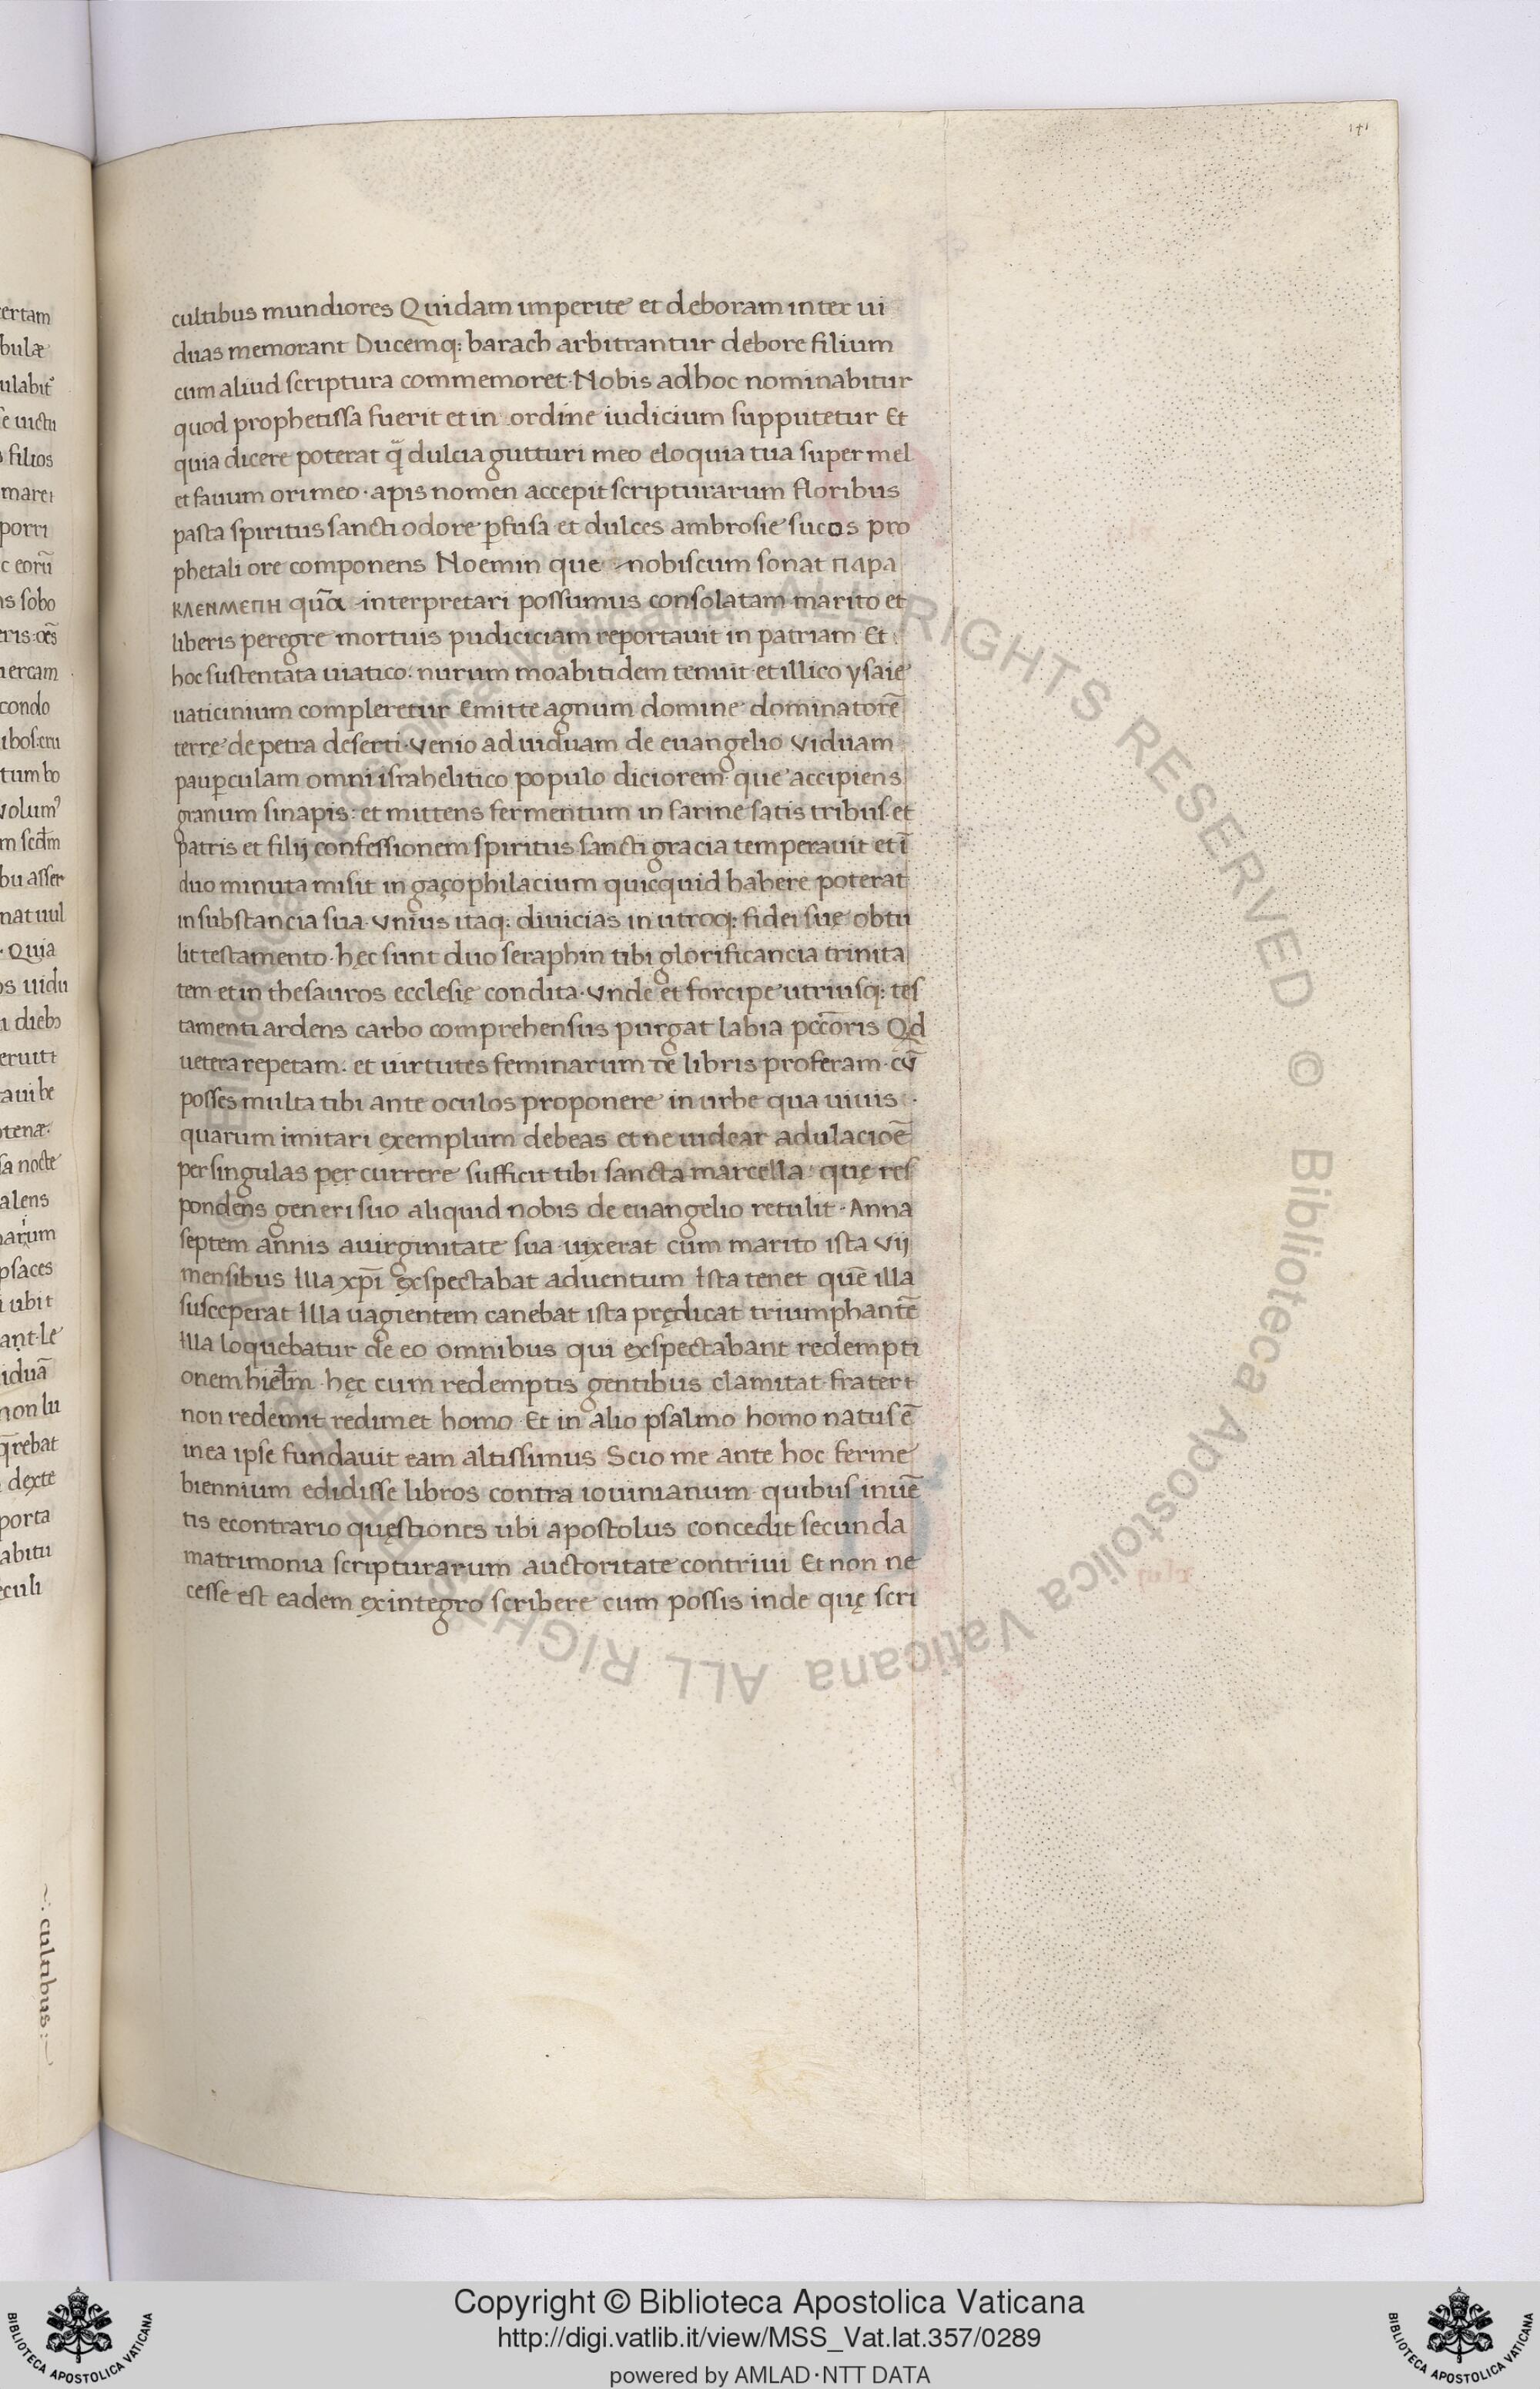 141
cultibus mundiores Quidam imperite et deboram inter ui
duas memorant Ducemq; barach arbitrantur debore filium
cum aliud scriptura commemoret· Nobis ad hoc nominabitur
quod prophetissa fuerit et in ordine iudicium supputetur Et
quia dicere poterat q̄ dulcia gutturi meo eloquia tua super mel
et fauum ori meo· apis nomen accepit scripturarum floribus
pasta spiritus sancti odore ꝑfusa et dulces ambrosie sucos pro
phetali ore componens Noemin que nobiscum sonat παρα
κλενμεπη quā interpretari possumus consolatam marito et
liberis peregre mortuis pudiciciam reportauit in patriam Et
hoc sustentata uiatico: nurum moabitidem tenuit· et illico ysaie
uaticinium compleretur Emitte agnum domine dominatorē
terrę de petra deserti· Venio ad uiduam de euangelio Viduam
pauꝑculam omni israhelitico populo diciorem· que accipiens
granum sinapis: et mittens fermentum in farine satis tribus· et
patris et filij confessionem spiritus sancti gracia temperauit et ī
duo minuta misit in gaçophilacium quicquid habere poterat
in substancia sua· Vnius itaq; diuicias in utroq; fidei suę obtu
lit testamento· hęc sunt duo seraphin tibi glorificancia trinita
tem· et in thesauros ecclesię condita· Vnde et forcipe utriusq; tes
tamenti ardens carbo comprehensus purgat labia pccōris Qd
uetera repetam: et uirtutes feminarum de libris proferam· cū
posses multa tibi ante oculos proponere in urbe qua uiuis·
quarum imitari exemplum debeas et ne uidear adulacioē
per singulas percurrere sufficit tibi sancta marcella quę res
pondens generi suo aliquid nobis de euangelio retulit· Anna
septem annis a uirginitate sua uixerat cum marito ista Vij
mensibus Illa xpī exspectabat aduentum Ista tenet quē illa
susceperat Illa uagientem canebat ista prędicat triumphantē
Illa loquebatur de eo omnibus qui exspectabant redempti
onem hierl̄m· hęc cum redemptis gentibus clamitat frater
non redemit redimet homo· Et in alio psalmo homo natus ē
in ea ipse fundauit eam altissimus Scio me ante hoc ferme
biennium edidisse libros contra iouinianum quibus inuē
tis econtrario quęstiones ubi apostolus concedit secunda
matrimonia scripturarum auctoritate contriui Et non ne
cesse est eadem ex integro scribere cum possis inde quę scri
ertam
bulæ
filios
porri
ns sobo
condo
tum bo
bu asser
nat uul
· Quia
diebꝫ
sa nocte
alens
psaces
non lu
dexte
porta
abitu
eculi
~: cultibus :~
© Biblioteca Apostolica Vaticana ALL RIGHTS RESERVED © Biblioteca Apostolica Vaticana ALL RIGHTS
Copyright © Biblioteca Apostolica Vaticana
http://digi.vatlib.it/view/MSS_Vat.lat.357/0289
powered by AMLAD·NTT DATA
BIBLIOTECA APOSTOLICA VATICANA
BIBLIOTECA APOSTOLICA VATICANA